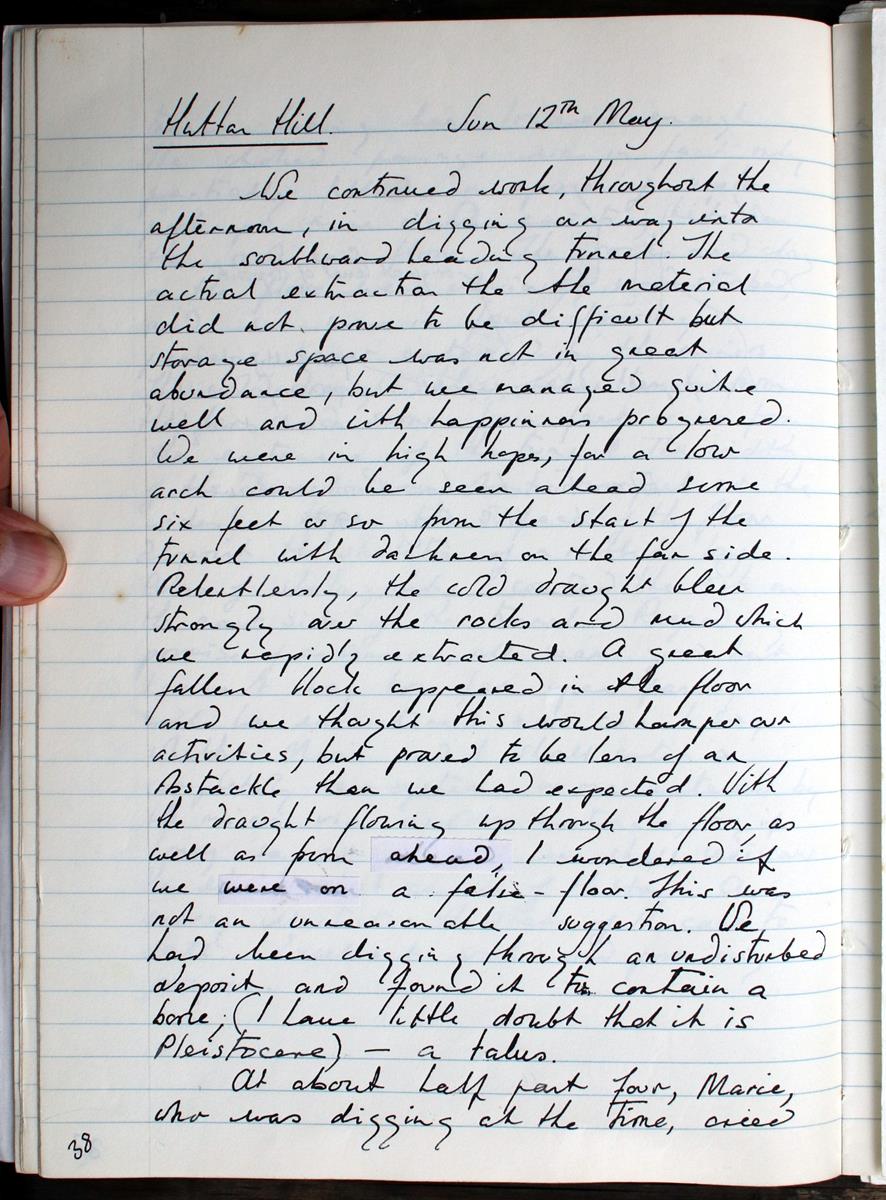 Hutton Hill. Sun 12TH May.
We continued work, throughout the
afternoon, in digging our way into
the southward heading tunnel. The
actual extraction the the material
did not prove to be difficult but
storage space was not in great
abundance, but we managed quite
well and with happiness progressed.
We were in high hopes, for a low
arch could be seen ahead some
six feet or so from the start of the
tunnel with darkness on the far side.
Relentlessly, the cold draught blew
strongly over the rocks and mud which
we rapidly extracted. A great
fallen block appeared in the floor
and we thought this would hamper our
activities, but proved to be less of an
obstackle than we had expected. With
the draught flowing up through the floor, as
well as from ahead, I wondered if
we were on a false-floor. This was
not an unreasonable suggestion. We,
had been digging through an undisturbed
deposit and found it to contain a
bone; (I have little doubt that it is
Pleistocene) — a talus.
At about half past four, Marie,
who was digging at the time, cried
38